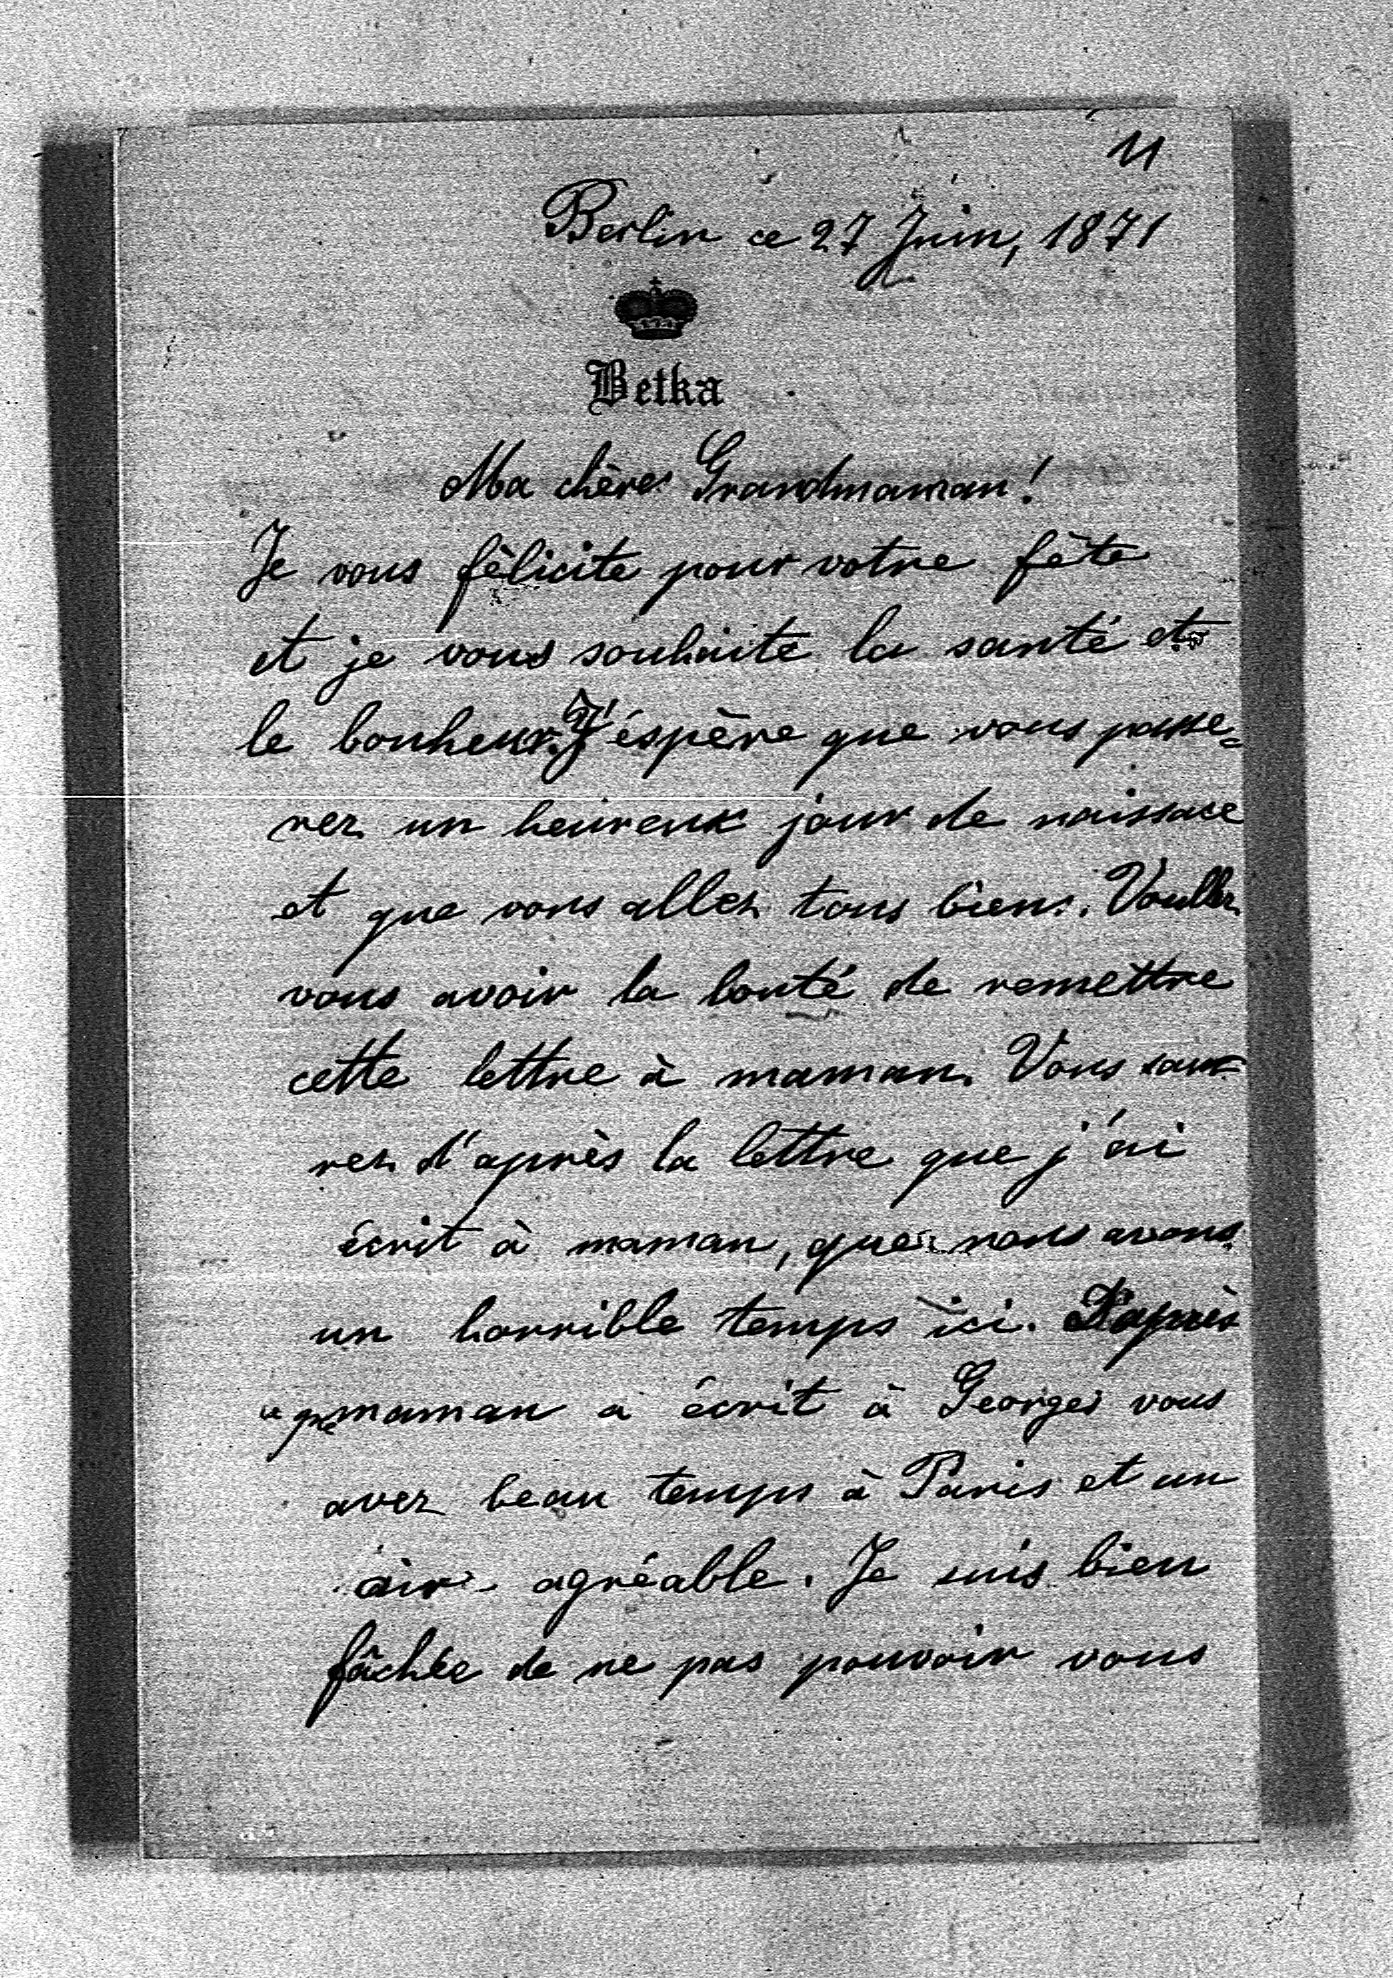 11
Berlin ce 27 Juin, 1871
Betka
Ma chère Grandmaman!
Je vous fèlicite pour votre fête
et je vous souhaite la santé et
le bonheur. J'éspère que vous passe=
rez un heureux jour de naissace
et que vous allez tous bien. Voullez
vous avoir la bonté de remettre
cette lettre à maman. Vous sau-
rez d'après la lettre que j'ai
écrit à maman, que nous avons
un horrible temps ici. D'après
ce que maman a écrit à Georges vous
avez beau temps à Paris et un
air agréable. Je suis bien
fâchée de ne pas pouvoir vous